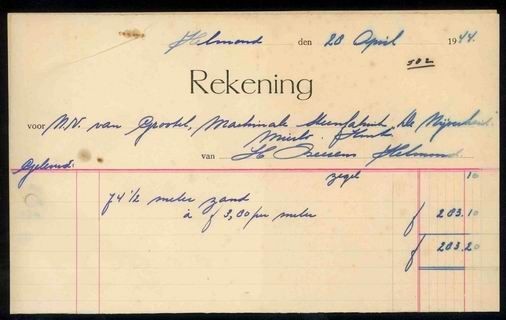 Helmond den 20 April 1944.
502
Rekening
voor N.V. van Grootel, Machinale Steenfabriek, "De Nijverheid"
Mierlo - Hout
van H Helmond
Geleverd:
zegel 10
74 1/2 meter zand
à f 3,00 per meter f 203.10
f 203.20